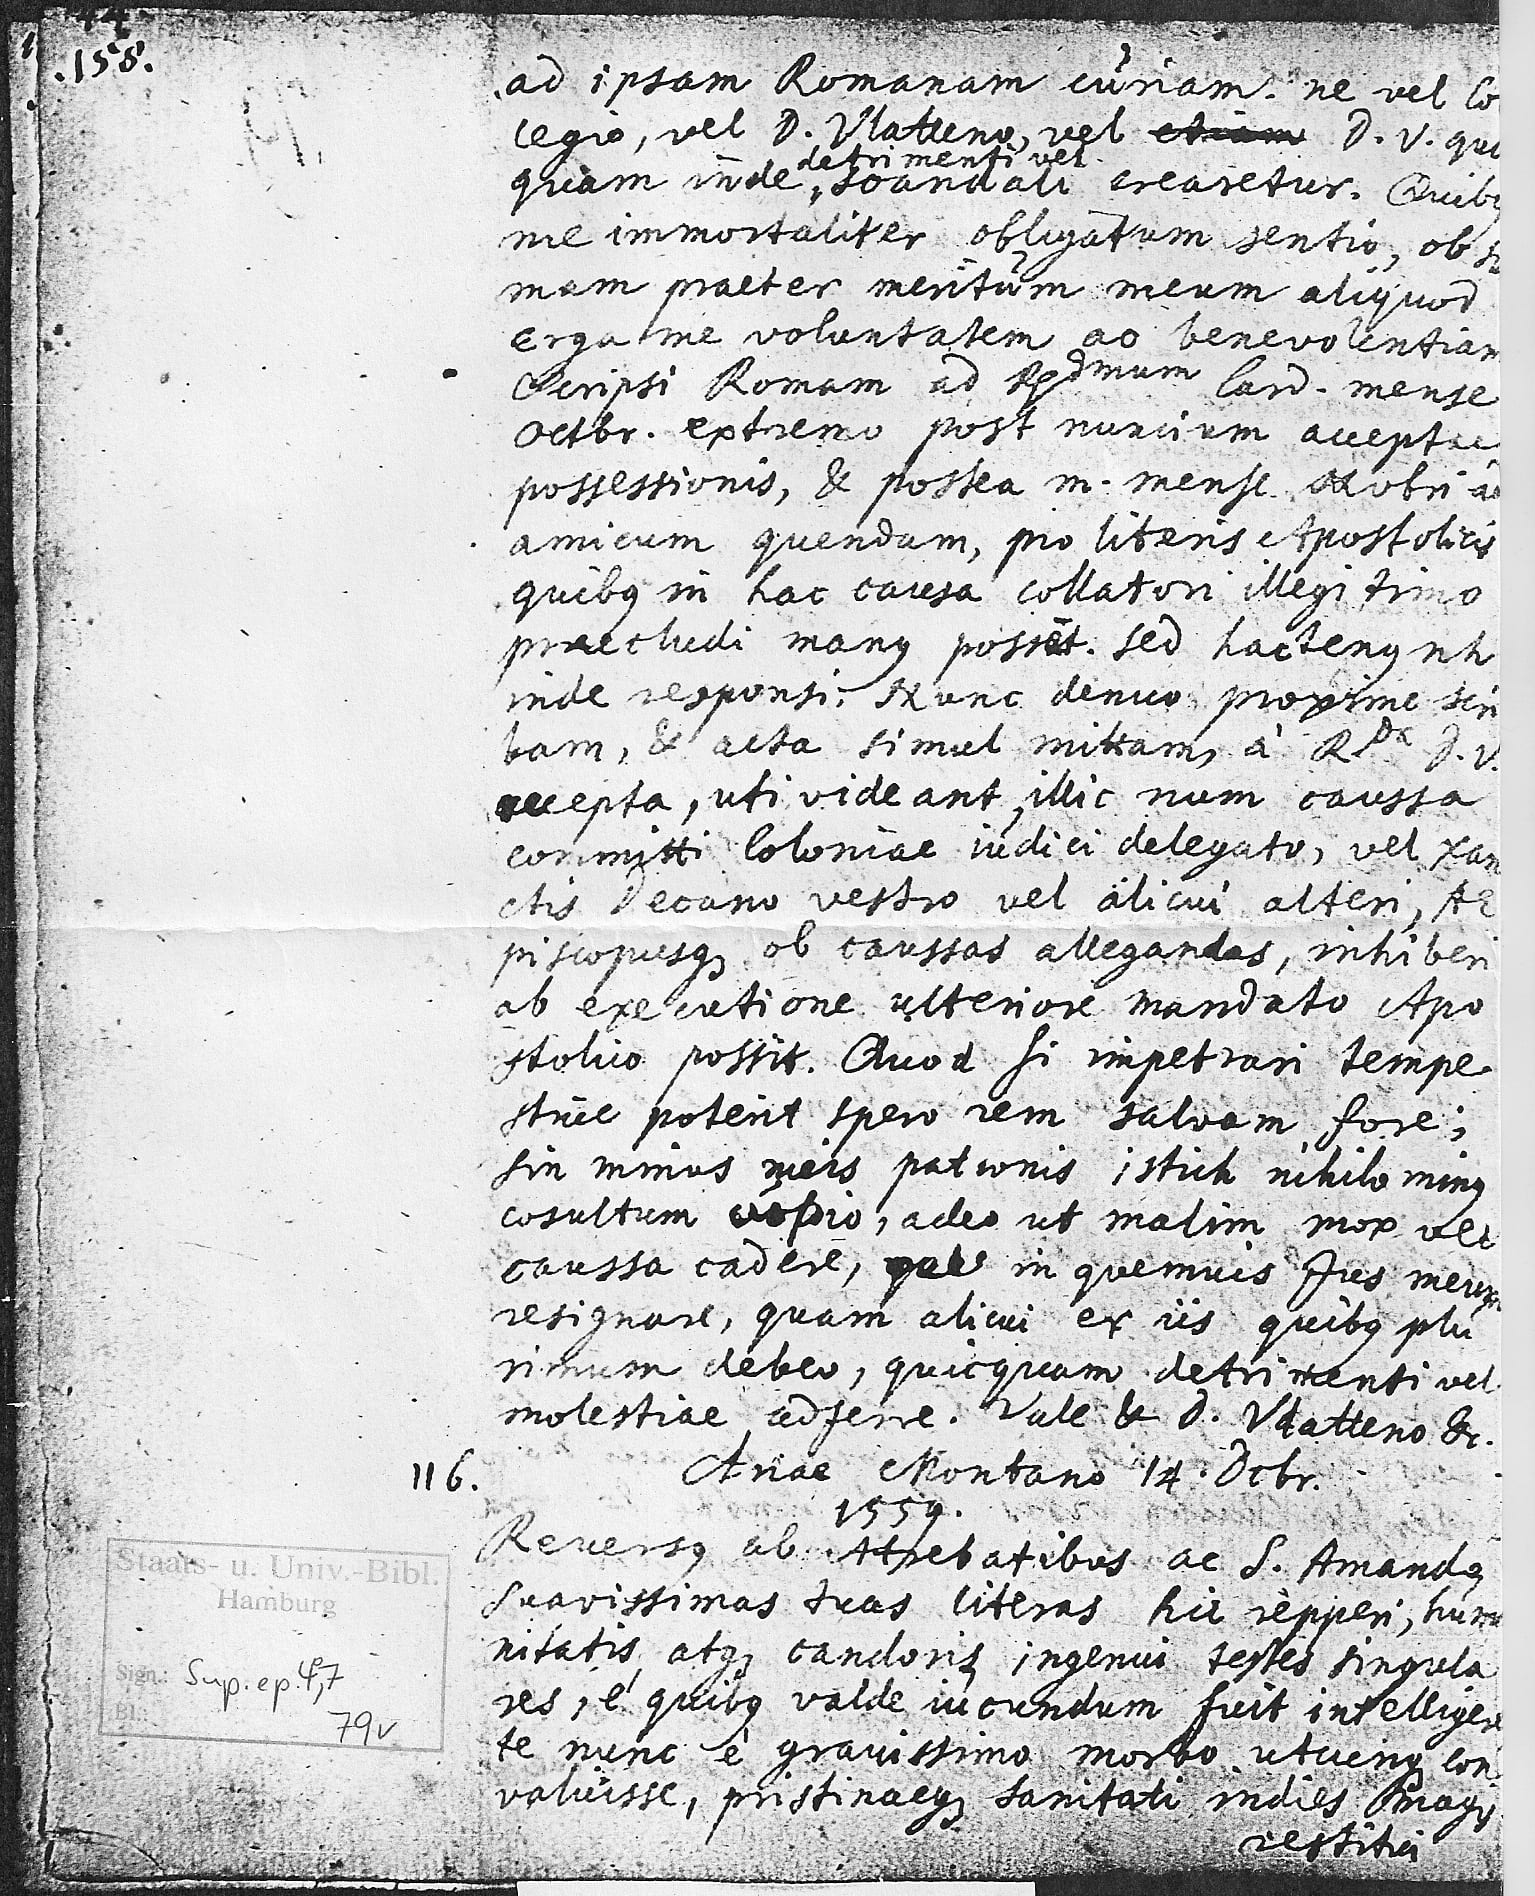 .158.
ad ipsam Romanam curiam. ne vel Co
legio, vel D. Vlatteno, vel etiam D. V. qui
detrimenti vel
quam inde, scandali crearetur. Quibq
me immortaliter obligatum sentio, ob su
mam praeter meritum meum aliquod
erga me voluntatem ac benevolentiam
Scripsi Romam ad Rdmum Card. mense
Octbr. extremo post nuncium acceptae
possessionis, & postea m. mense ad
amicum quendam, pro literis Apostolicis
quibq in hac causa collatori illegitimo
praecludi manq possēt. sed hactenq nh
inde responsi. Nunc denuo proxime scri
bam, & acta simul mittam, à Rda D. V.
accepta, uti videant, illic num caussa
committi Coloniae iudici delegato, vel Xan
ctis Decano vestro vel alicui alteri, AE
piscopusq ob caussas allegandas, inhiberi
ab executione ulteriore mandato Apo
stolico possit. Quod si impetrari tempe
stiue poterit spero rem salvam fore;
sin minus meis patronis istich nihilo minq
cōsultum cupio, adeo ut malim mox vel
caussa cadere, vel in quemuis Jus meum
resignare, quam alicui ex iis quibq plu
rimum debeo, quicquam detrimenti vel
molestiae adferre. Vale & D. Vlatteno &c.
116. Ariae Montano 14. Dcbr.
1559.
Reuersq ab Atrebatibus ac S. Amandq
suavissimas tuas literas hic repperi, huma
nitatis atq candoris ingenui testes singula
res, è quibq valde iucundum fuit intelligere
te nunc è grauissimo morbo utcunq con
valuisse, pristinaeq sanitati indies magq
restitui
Staats- u. Univ.-Bibl.
Hamburg
Sign.: Sup. ep. 4°, 7
Bl.: 79v